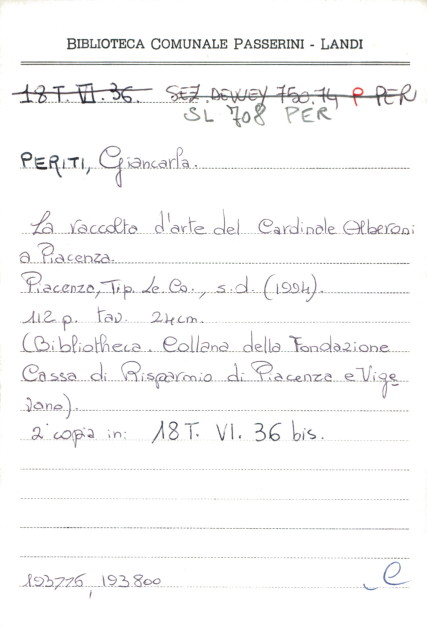 BIBLIOTECA COMUNALE PASSERINI - LANDI
18 T. VI. 36. SEZ. DEWEY 750.74 P PER
SL 708 PER
PERITI, Giancarla.
La raccolta d'arte del Cardinale Alberoni
a Piacenza.
Piacenza, Tip. Le. Co., s.d. (1994).
112 p. tav. 24cm.
(Bibliotheca. Collana della Fondazione
Cassa di Risparmio di Piacenza e Vige
vano).
2ª copia in: 18 T. VI. 36 bis.
193775, 193.800
C